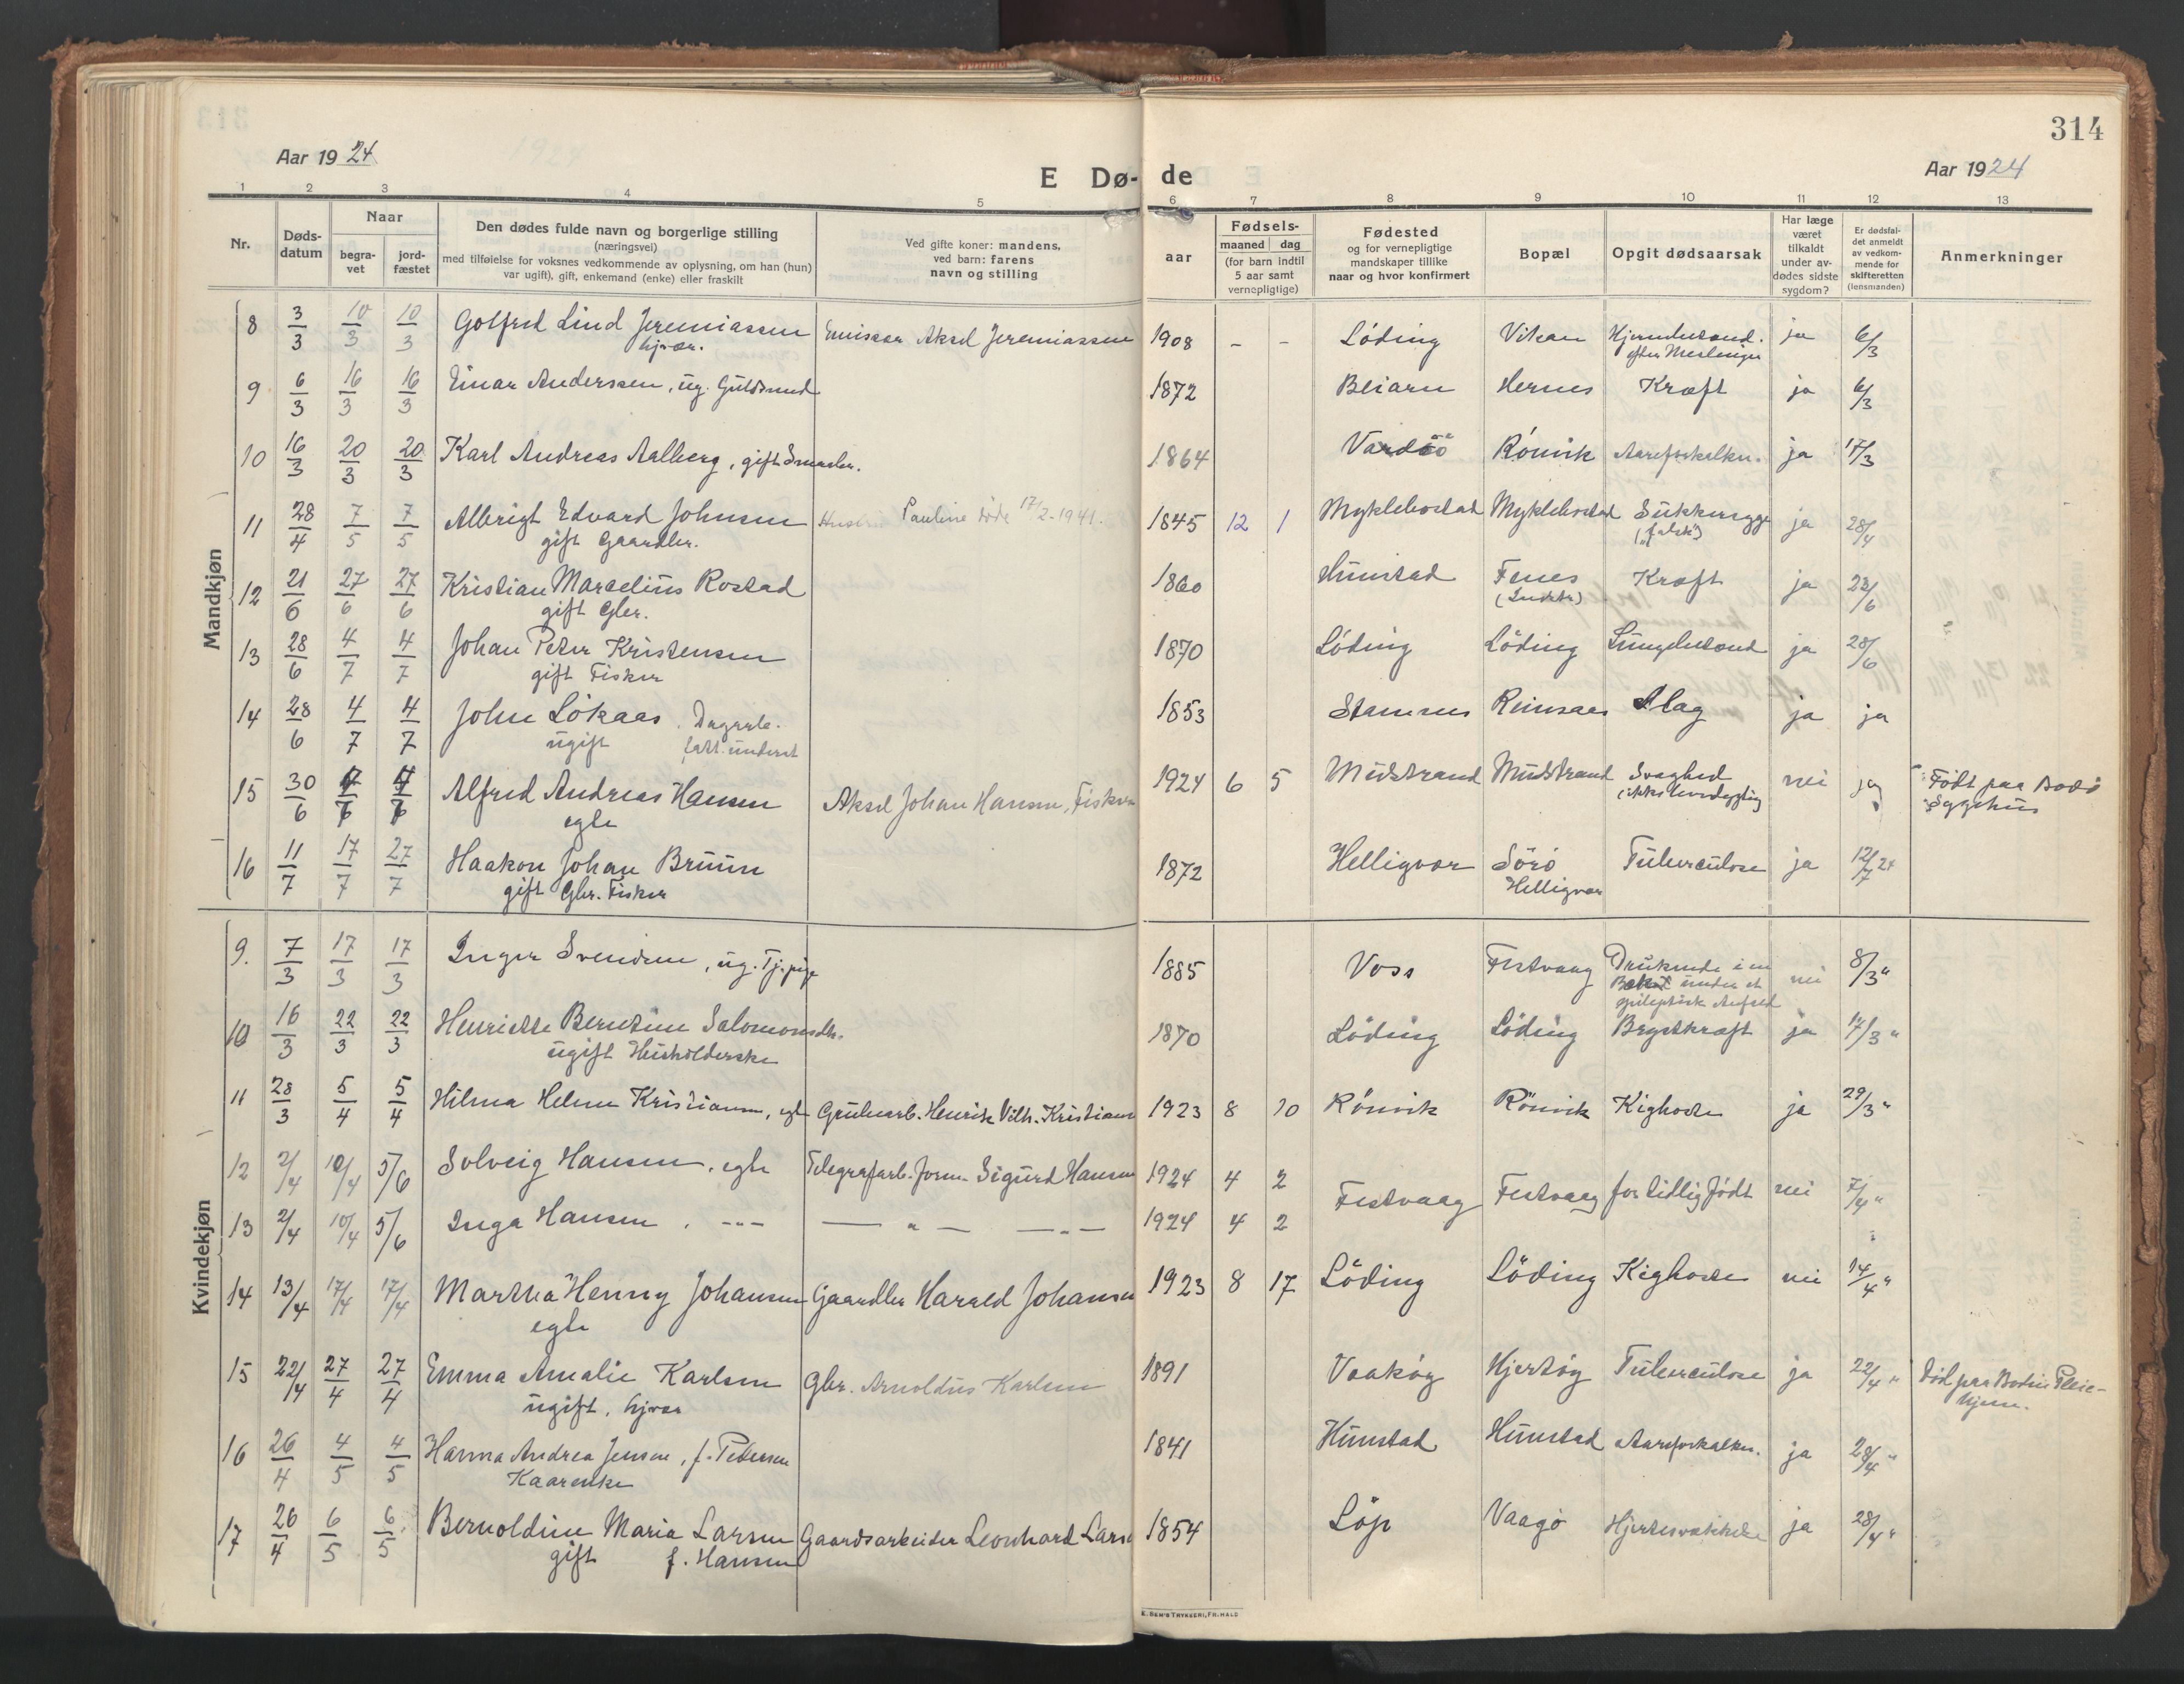 314
Aar 1924
E Dø-
de
Aar 1924
1 2 3 4 5 6 7 8 9 10 11 12 13
Nr.
Døds-
datum
Naar
begra-
vet
jord-
fæstet
Den dødes fulde navn og borgerlige stilling
(næringsvei)
med tilføielse for voksnes vedkommende av oplysning, om han (hun)
var ugift), gift, enkemand (enke) eller fraskilt
Ved gifte koner: mandens,
ved barn: farens
navn og stilling
Fødsels-
aar
maaned dag
(for barn indtil
5 aar samt
vernepligtige)
Fødested
og for vernepligtige
mandskaper tillike
naar og hvor konfirmert
Bopæl
Opgit dødsaarsak
Har læge
været
tilkaldt
under av-
dødes sidste
sygdom?
Er dødsfal-
det anmeldt
av vedkom-
mende for
skifteretten
(lensmanden)
Anmerkninger
Mandkjøn
8 3/3 10/3 10/3 Golfred Lind Jeremiassen Emissær Aksel Jeremiassen 1908 - - Löding Vikan Hjernebetænd. ja 6/3
hjvær. efter Meslinger
9 6/3 16/3 16/3 Einar Anderssen, ug. Guldsmed 1872 Beiarn Hernes Kræft ja 6/3
10 16/3 20/3 20/3 Karl Andreas Aalberg, gift Snedker. 1864 Vardö Rönvik Aareforkalkn. ja 17/3
11 28/4 7/5 7/5 Albrigt Edvard Johnsen Hustru Pauline döde 17/2-1941. 1845 12 1 Myklebostad Myklebostad Sukkersyge ja 28/4
gift Gaardbr.
12 21/6 27/6 27/6 Kristian Marcelius Rostad 1860 Hunstad Fenes Kræft ja 23/6
gift Gbr.
13 28/6 4/7 4/7 Johan Peter Kristensen 1870 Löding Löding Lungebetænd ja 28/6
gift Fisker
14 28/6 4/7 4/7 John Lökaas. Dagarb. 1853 Stamnes Reinsaas Slag ja ja
ugift fatt. underst
15 30/6 Alfred Andreas Hansen Aksel Johan Hansen, Fisker 1924 6 5 Midstrand Midstrand Svaghed nei ja Født paa Bodø
egte (ikke levedygtig Sygehus
16 11/7 17/7 27/7 Haakon Johan Bruun 1872 Helligvær Sörö Tuberculose ja 12/7 24
gift Gbr. Fisker Helligvær
Kvindekjøn
9. 7/3 17/3 17/3 Inger Svendsen, ug. Tj.pige 1885 Voss Festvaag Druknede i en nei 8/3 "
Bæk under et
epileptisk Anfald
10 16/3 22/3 22/3 Henriette Berntine Salomonsdtr. 1870 Löding Löding Brystkræft ja 17/3 "
ugift Husholderske
11 28/3 5/4 5/4 Hilma Helene Kristiansen, egte Grubearb. Henrik Vilh. Kristians 1923 8 10 Rönvik Rönvik Kighoste ja 29/3 "
12 2/4 10/4 5/6 Solveig Hansen, egte Telegrafarb. form. Sigurd Hansen 1924 4 2 Festvaag Festvaag for tidlig født nei 7/4 "
13 2/4 10/4 5/6 Inga Hansen. --- — " — — " — 1924 4 2
14 13/4 17/4 17/4 Martha Henny Johansen Gaardbr Harald Johansen 1923 8 17 Löding Löding Kighoste nei 14/4 "
egte
15 22/4 27/4 27/4 Emma Amalie Karlsen Gbr. Arnoldus Karlsen 1891 Vaaköy Hjertöy Tuberculose ja 22/4 " Död paa Bodin Pleie-
ugift, hjvær hjem.
16 26/4 4/5 4/5 Hanna Andrea Jensen, f. Petersen 1841 Hunstad Hunstad Aareforkalkn. ja 28/4 "
Kaarenke
17 26/4 6/5 6/5 Bernoldine Maria Larsen Gaardsarbeider Leonhard Lars 1854 Löp Vaagö Hjertesvækkelse ja 28/4 "
gift f. Hansen
E. SEM'S TRYKKERI, FR.HALD